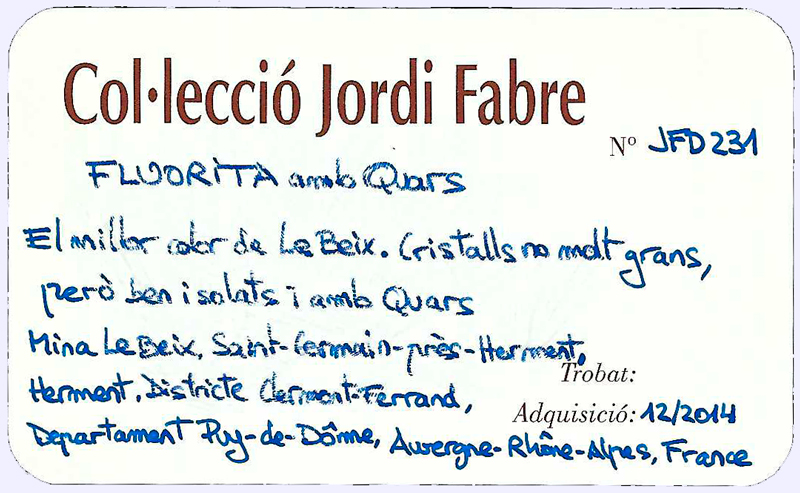 Col·lecció Jordi Fabre
Nº JFD231
FLUORITA amb Quars
El millor color de Le Beix. Cristalls no molt grans,
però ben isolats i amb Quars
Mina Le Beix, Saint-Germain-près-Herment,
Trobat:
Herment, Districte Clermont-Ferrand,
Adquisició: 12/2014
Departament Puy-de-Dôme, Auvergne-Rhône-Alpes, France